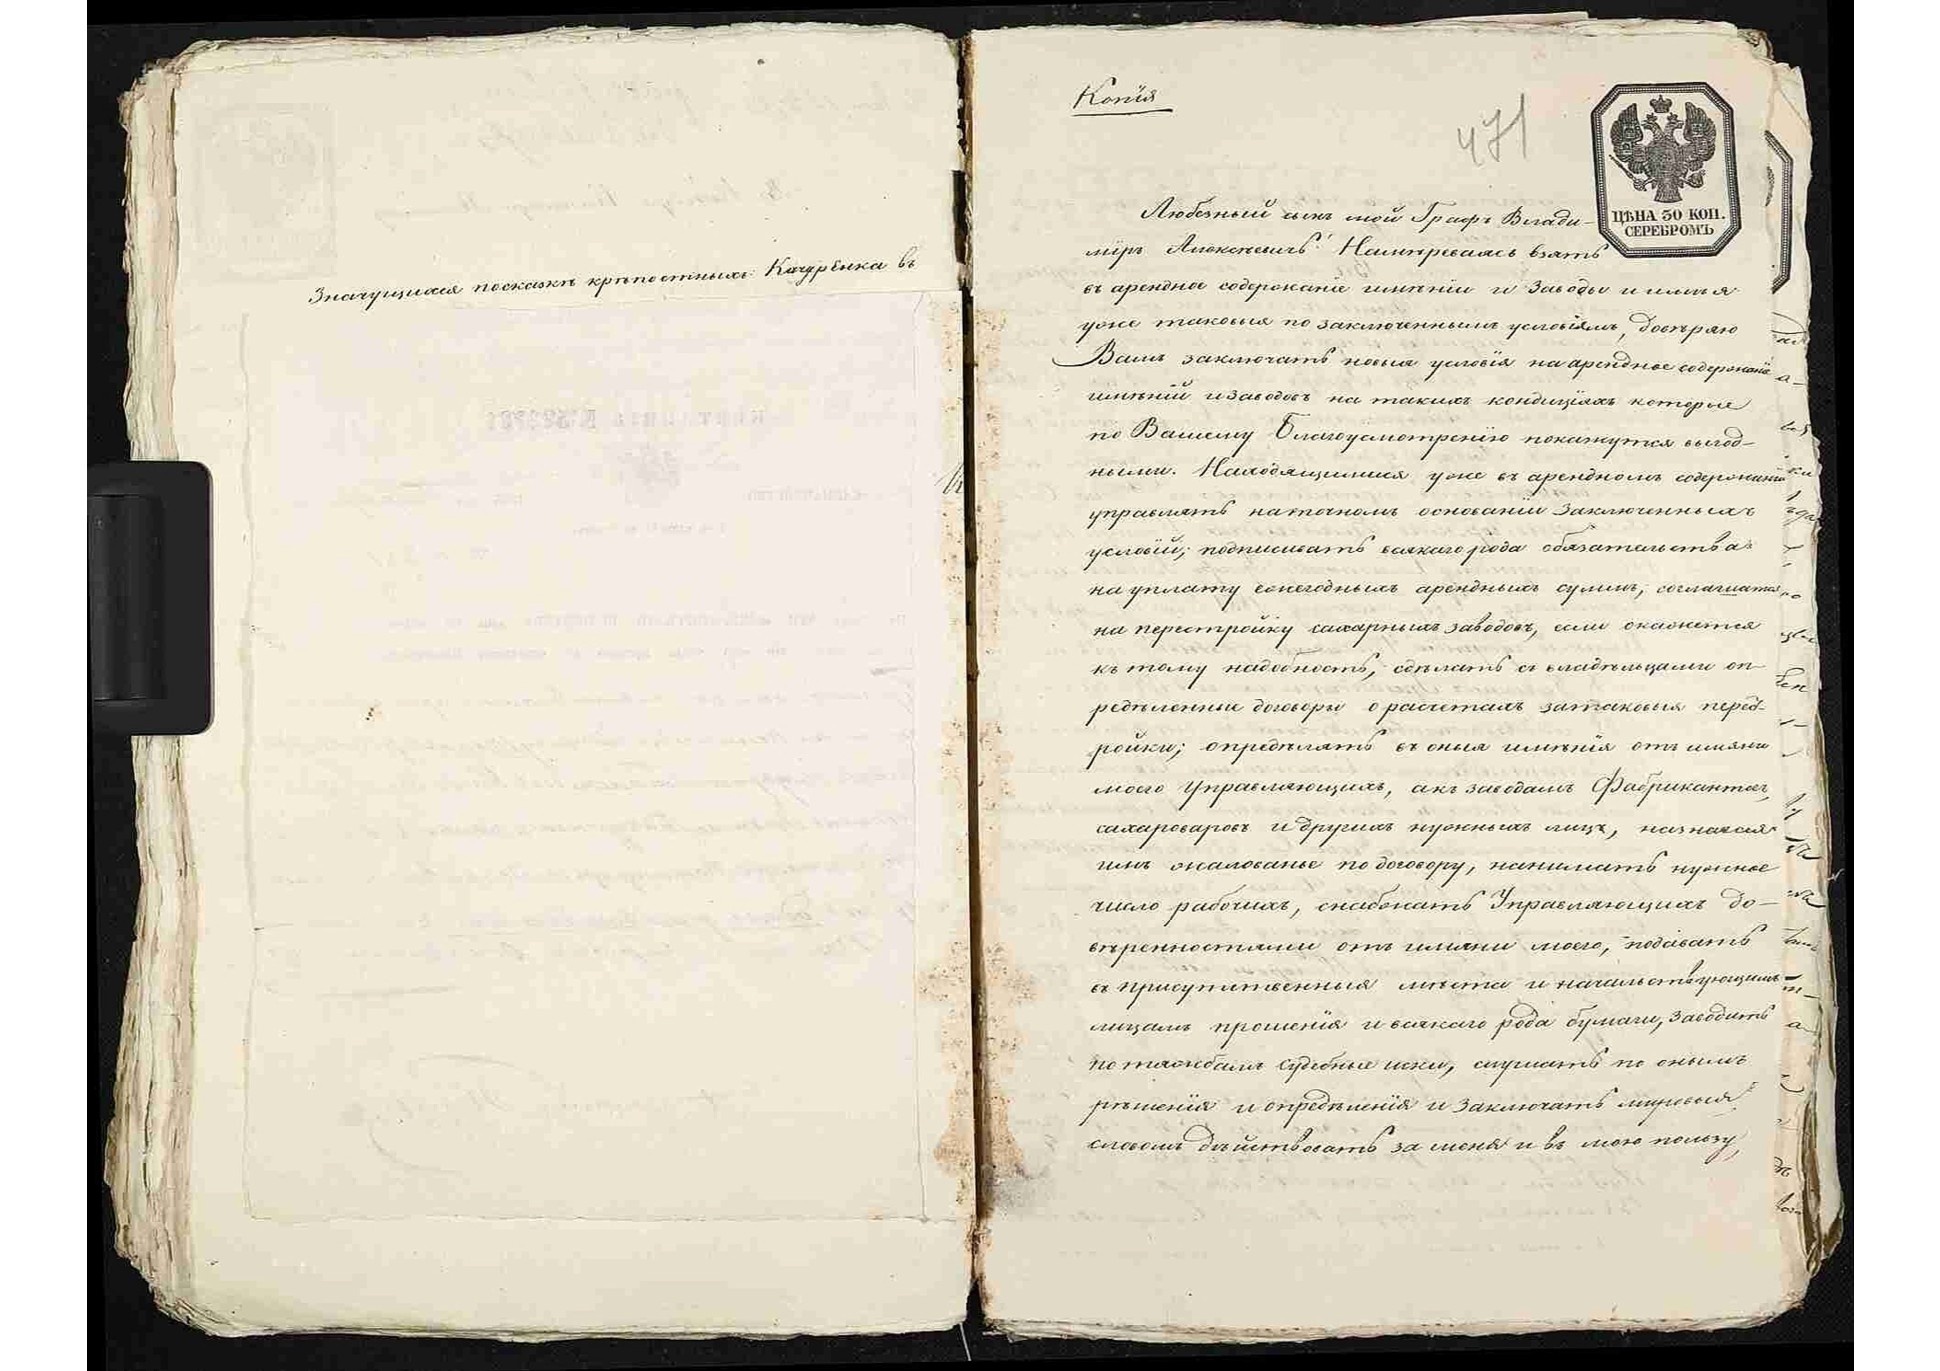 Значущихся посказкѣ крѣпостныхъ Качуренка въ
Копія
471
ЦѢНА 30 КОП.
СЕРЕБРОМЪ
Любезный сынъ мой Графъ Влади-
міръ Алексѣевичъ! Намѣреваясь взять
въ арендное содержаніе имѣніи и Заводы и имѣя
уже таковыя по заключеннымъ условіямъ, довѣряю
Вамъ заключать новыя условія на арендное содержаніе
имѣній и заводовъ на такихъ кондиціяхъ которые
по Вашему Благоусмотренію покажутся выгод-
ными. Находящимися уже въ арендномъ содержаніи
управлять на точномъ основаніи Заключенныхъ
условій; подписывать всякаго рода обязательства
на уплату ежегодныхъ арендныхъ суммъ, соглашатся
на перестройку сахарныхъ заводовъ, если окажется
къ тому надобность, сдѣлать съ владѣльцами оп-
редѣленные договоры о расчетахъ за таковыя перест-
ройки; опредѣлять въ оныя имѣнія отъ имяни
моего Управляющихъ, а къ заводамъ Фабрикантовъ,
сахароваровъ и другихъ нужныхъ лицъ, назначая
имъ жалованье по договору, нанимать нужное
число рабочихъ, снабжать Управляющихъ до-
вѣренностями отъ имяни моего, подавать
въ присутственныя мѣста и начальствующимъ
лицамъ прошенія и всякаго рода бумаги, заводить
по тяжбамъ судебные иски, слушать по онымъ
рѣшенія и опредѣленія и Заключать мировыя,
словомъ дѣйствовать за меня и въ мою пользу,